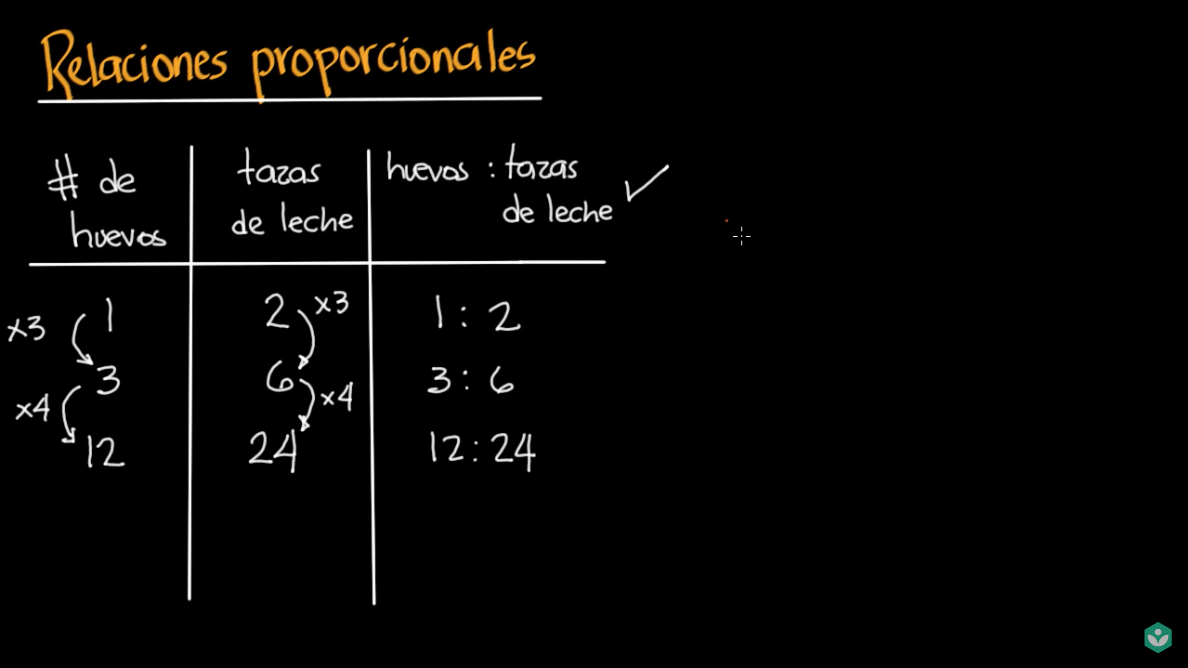 Relaciones proporcionales
# de huevos
tazas de leche
huevos : tazas de leche
x3 1 2 x3 1 : 2
x4 3 6 x4 3 : 6
12 24 12 : 24